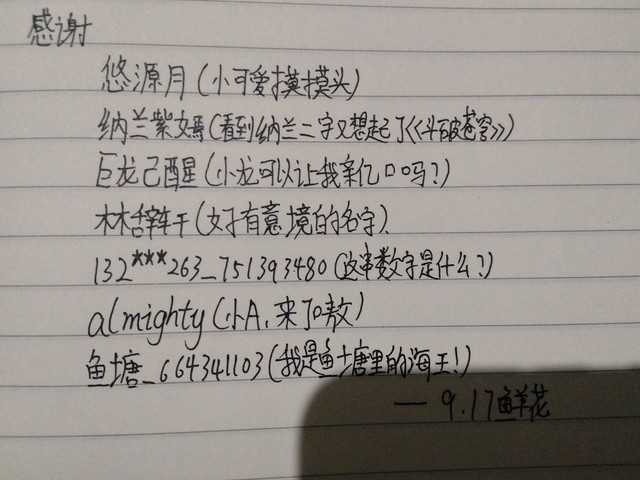 感谢
悠源月(小可爱摸摸头)
纳兰紫嫣(看到纳兰二字又想起了《斗破苍穹》)
巨龙己醒(小龙可以让我亲亿口吗?)
林辞年(好有意境的名字)
132***263_751393480(这串数字是什么?)
almighty(小A,来了嗷)
鱼塘_664341103(我是鱼塘里的海王!)
— 9.17鲜花